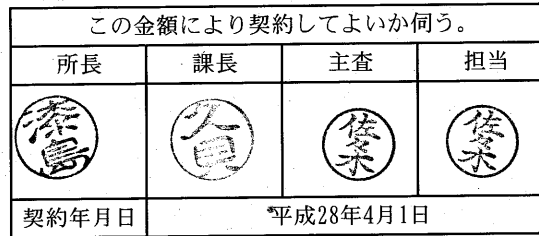 この金額により契約してよいか伺う。
所長 課長 主査 担当
漆島 久貝 佐々木 佐々木
契約年月日 平成28年4月1日